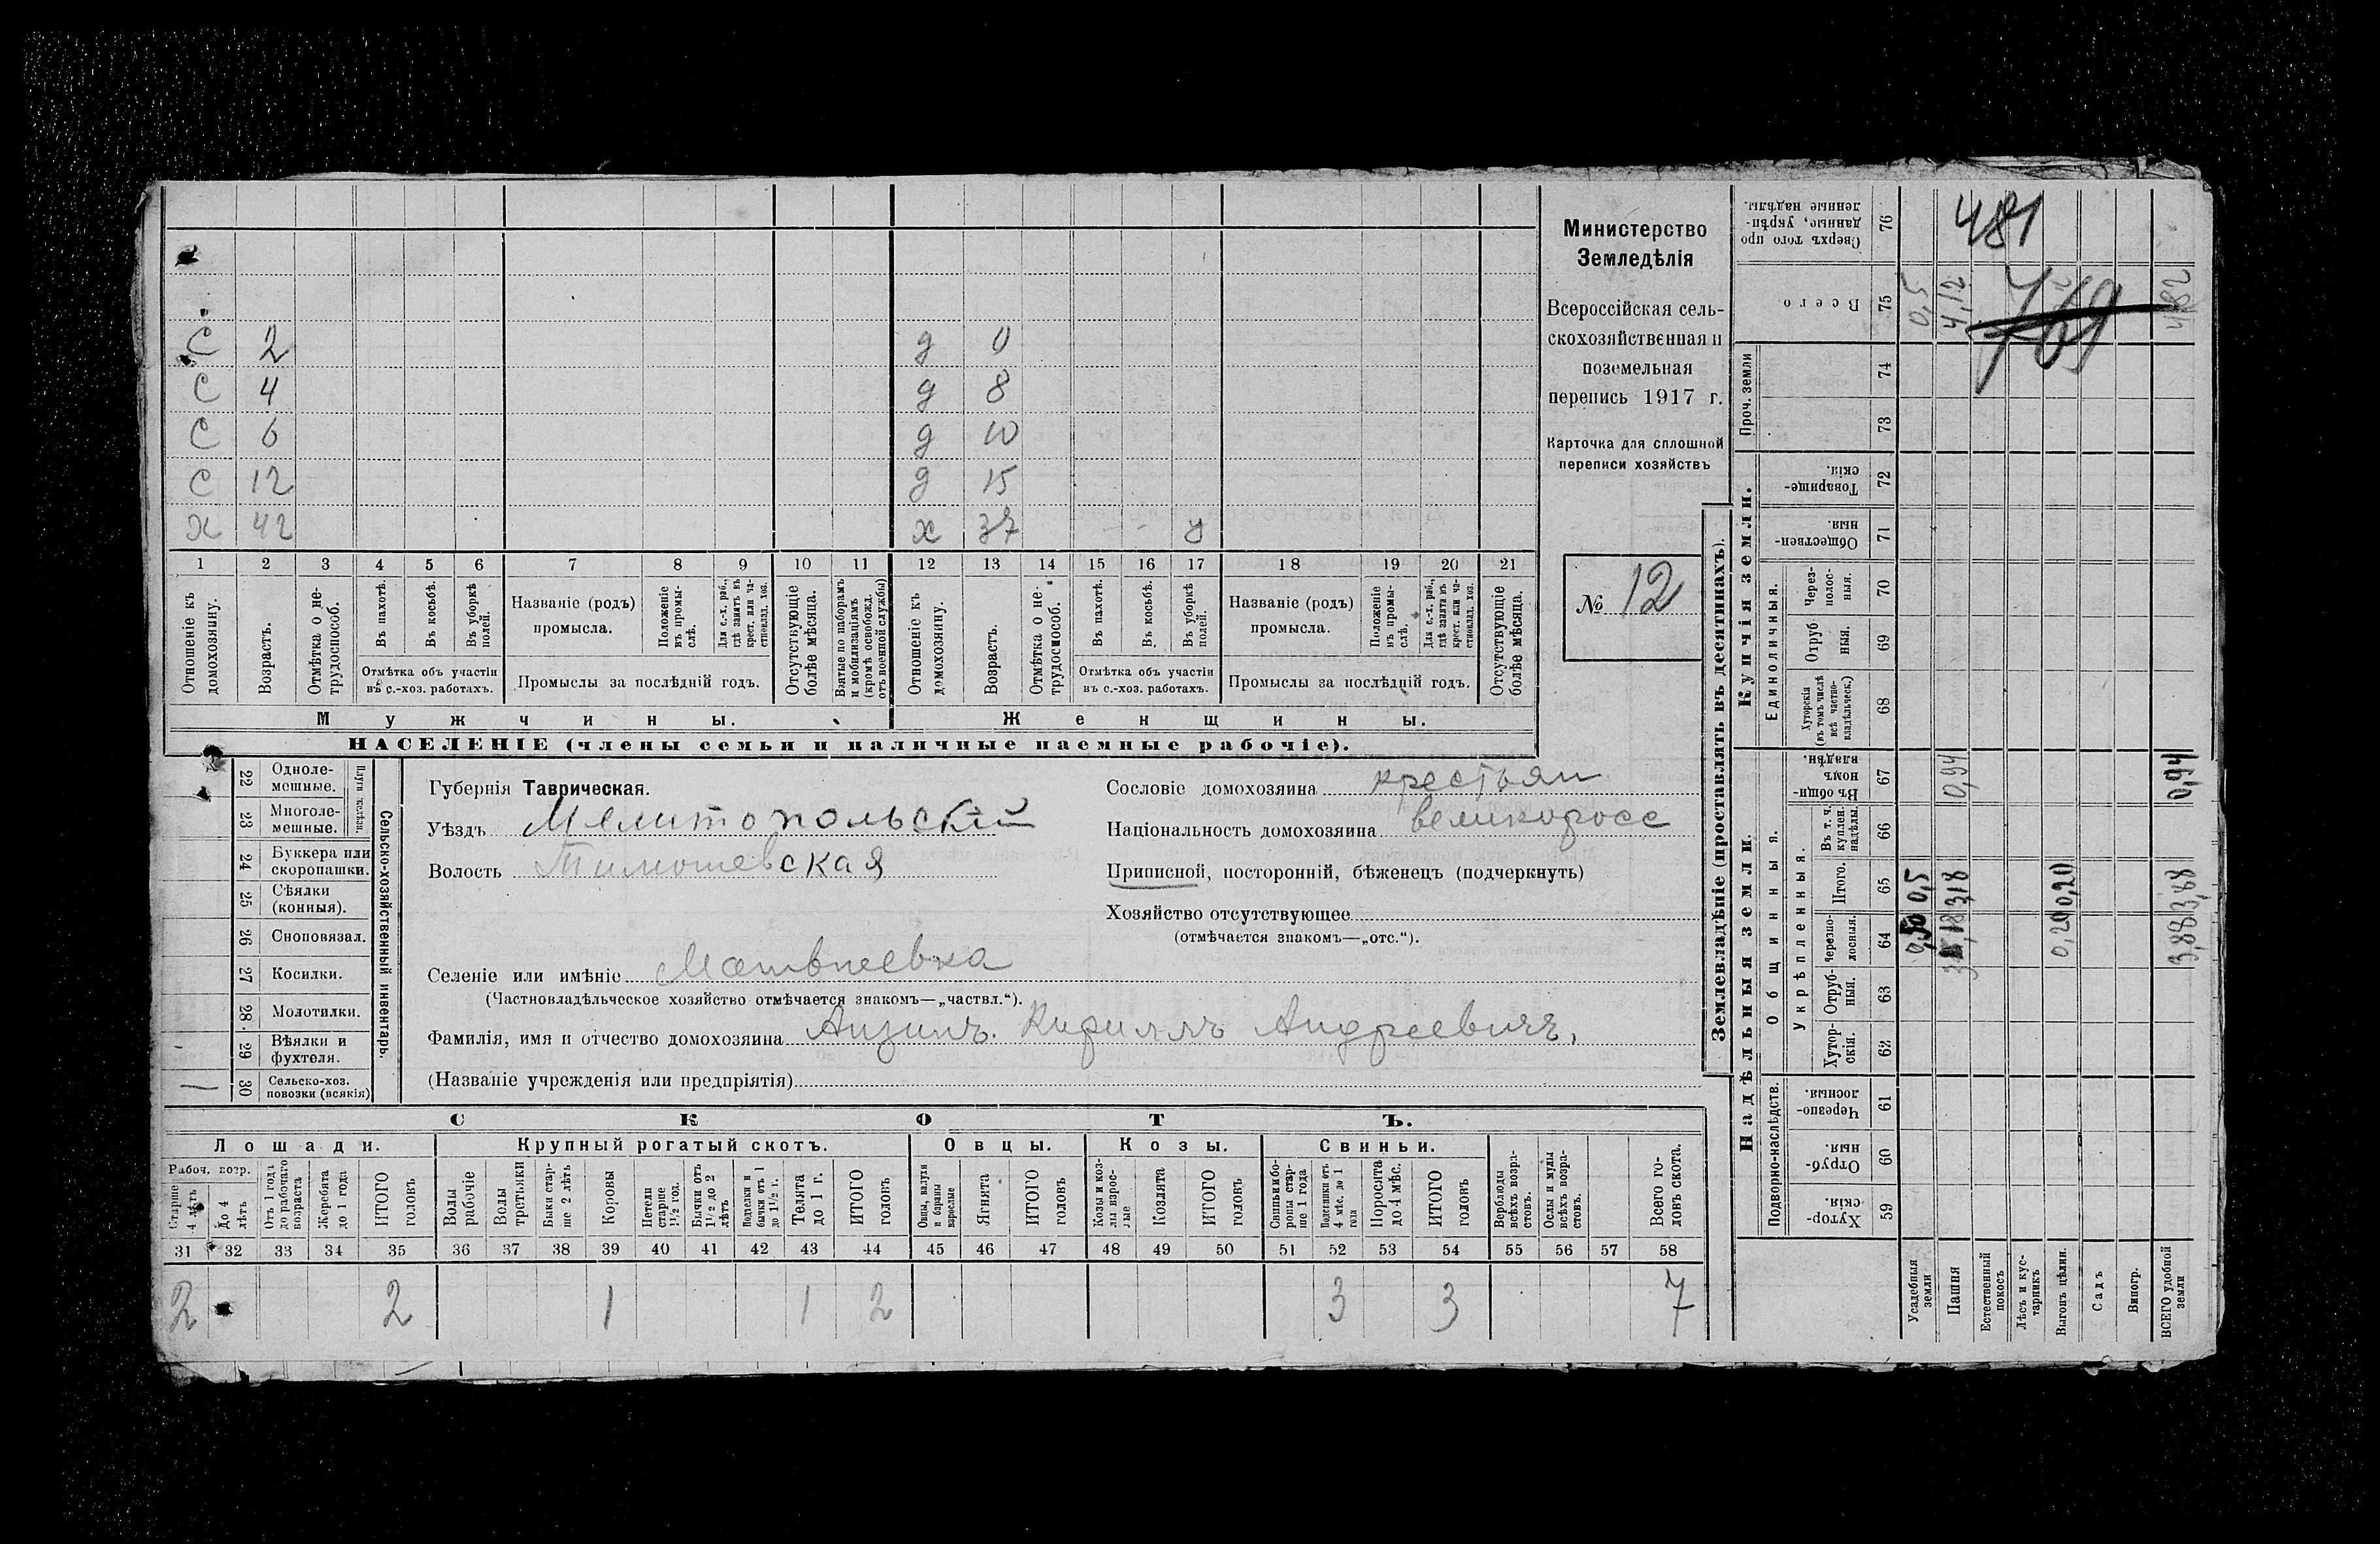 Министерство
Земледѣлія
Всероссійская сель-
скохозяйственная и
поземельная
перепись 1917 г.
Карточка для сплошной
переписи хозяйствъ
№ 12
С 2 д 0
С 4 д 8
С 6 д 10
С 12 д 15
х 42 х 37 - - у
1 2 3 4 5 6 7 8 9 10 11 12 13 14 15 16 17 18 19 20 21
Отношеніе къ домохозяину.
Возрастъ.
Отмѣтка о не-трудоспособ.
Въ пахотѣ.
Въ косьбѣ.
Въ уборкѣ полей.
Отмѣтка объ участіи
въ с.-хоз. работахъ.
Названіе (родъ)
промысла.
Положеніе въ промы-слѣ.
Для с.-х. раб., гдѣ занятъ въ крест. или ча-стновлад. хоз.
Промыслы за послѣдній годъ.
Отсутствующіе болѣе мѣсяца.
Взятые по наборамъ и мобилизаціямъ (кромѣ освобожд. отъ военной службы)
Отношеніе къ домохозяину.
Возрастъ.
Отмѣтка о не-трудоспособ.
Въ пахотѣ.
Въ косьбѣ.
Въ уборкѣ полей.
Отмѣтка объ участіи
въ с.-хоз. работахъ.
Названіе (родъ)
промысла.
Положеніе въ промы-слѣ.
Для с.-х. раб., гдѣ занята въ крест. или ча-стновлад. хоз.
Промыслы за послѣдній годъ.
Отсутствующіе болѣе мѣсяца.
Мужчины. Женщины.
НАСЕЛЕНІЕ (члены семьи и наличные наемные рабочіе).
Сельско-хозяйственный инвентарь.
Плуги желѣзн.
22 Одноле-мешные.
23 Многоле-мешные.
24 Буккера или скоропашки.
25 Сѣялки (конныя).
26 Сноповязал.
27 Косилки.
28 Молотилки.
29 Вѣялки и фухтеля.
30 Сельско-хоз. повозки (всякія)
Губернія Таврическая.
Уѣздъ Мелитопольскій
Волость Тимошевская
Селеніе или имѣніе Матвѣевка
(Частновладѣльческое хозяйство отмѣчается знакомъ—„частвл.“).
Фамилія, имя и отчество домохозяина Анзинъ. Кириллъ Андреевичъ,
(Названіе учрежденія или предпріятія)
Сословіе домохозяина крестьян
Національность домохозяина великоросс
Приписной, посторонній, бѣженецъ (подчеркнуть)
Хозяйство отсутствующее
(отмѣчается знакомъ—„отс.“).
СКОТЪ.
Лошади. Крупный рогатый скотъ. Овцы. Козы. Свиньи.
Рабоч. возр.
Старше 4 лѣтъ
До 4 лѣтъ
Отъ 1 года до рабочаго возраста
Жеребята до 1 года
ИТОГО головъ
Волы рабочіе
Волы третьяки
Быки стар-ше 2 лѣтъ
Коровы
Нетели старше 1 1/2 год.
Бычки отъ 1 1/2 до 2 лѣтъ
Подтелки и бычки отъ 1 до 1 1/2 г.
Телята до 1 г.
ИТОГО головъ
Овцы, валухи и бараны взрослые
Ягнята
ИТОГО головъ
Козы и коз-лы взрос-лые
Козлята
ИТОГО головъ
Свиньи и бо-ровы стар-ше 1 года
Подсвинки отъ 4 мѣс. до 1 года
Поросята до 4 мѣс.
ИТОГО головъ
Верблюды всѣхъ возра-стовъ.
Ослы и мулы всѣхъ возра-стовъ.
Всего го-ловъ скота.
31 32 33 34 35 36 37 38 39 40 41 42 43 44 45 46 47 48 49 50 51 52 53 54 55 56 57 58
2 2 1 1 2 3 3 7
Землевладѣніе (проставлять въ десятинахъ).
Надѣльныя земли. Купчія земли. Проч. земли
Подворно-наслѣдств.
Общинныя.
Укрѣпленныя.
Единоличныя.
Хутор-скія. 59
Отруб-ныя. 60
Черезпо-лосныя. 61
Хутор-скія. 62
Отруб-ныя. 63
Черезпо-лосныя. 64
Итого. 65
Въ т. ч. куплен. надѣлы. 66
Въ общи-номъ владѣн. 67
Хуторскія (въ томъ числѣ всѣ частно-владѣльческ.) 68
Отруб ныя. 69
Через-полос-ныя. 70
Обществен-ныя. 71
Товарище-скія. 72
73
74
Всего 75
Сверхъ того про данные, укрѣп-ленные надѣлы. 76
Усадебныя земли 0,50 0,5 0,5
Пашня 3,18 3,18 0,94 4,12
Естественный покосъ
Лѣсъ и кус-тарникъ
Выгонъ цѣлин. 0,20 0,20
Садъ
Виногр.
ВСЕГО удобной земли 3,88 3,88 0,94 4,82
481
769